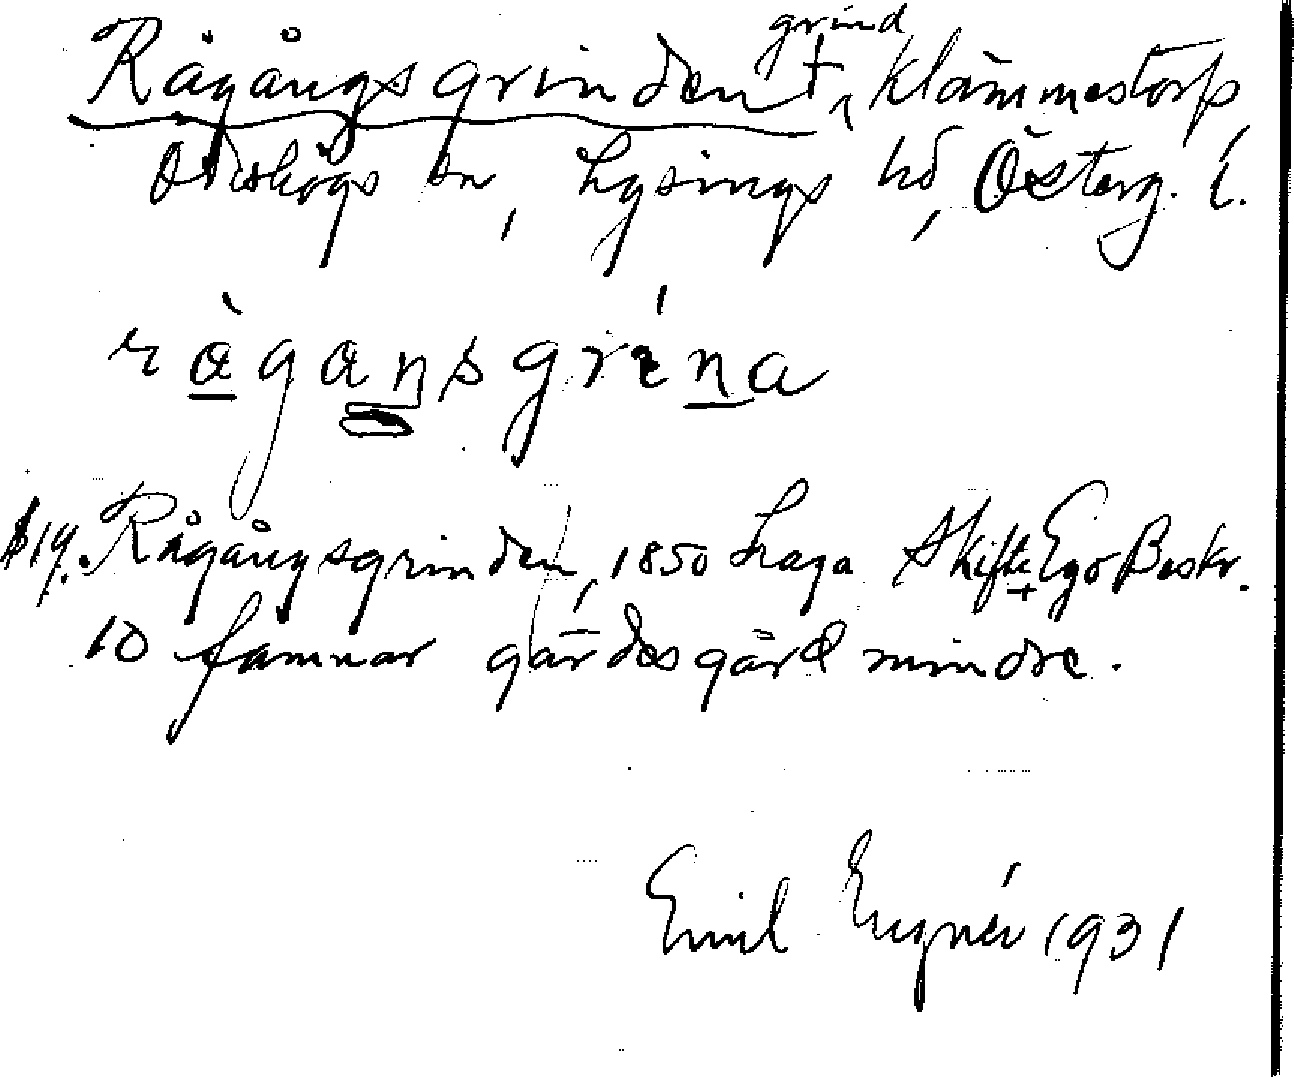 grind
Rågångsgrinden †, Klämmestorp,
Ödeshögs sn, Lysings hd, Österg. l.
rågansgrina
§ 19. Rågångsgrinden, 1850 Laga Skifte Ego Beskr.
10 famnar gärdesgård mindre.
Emil 1931